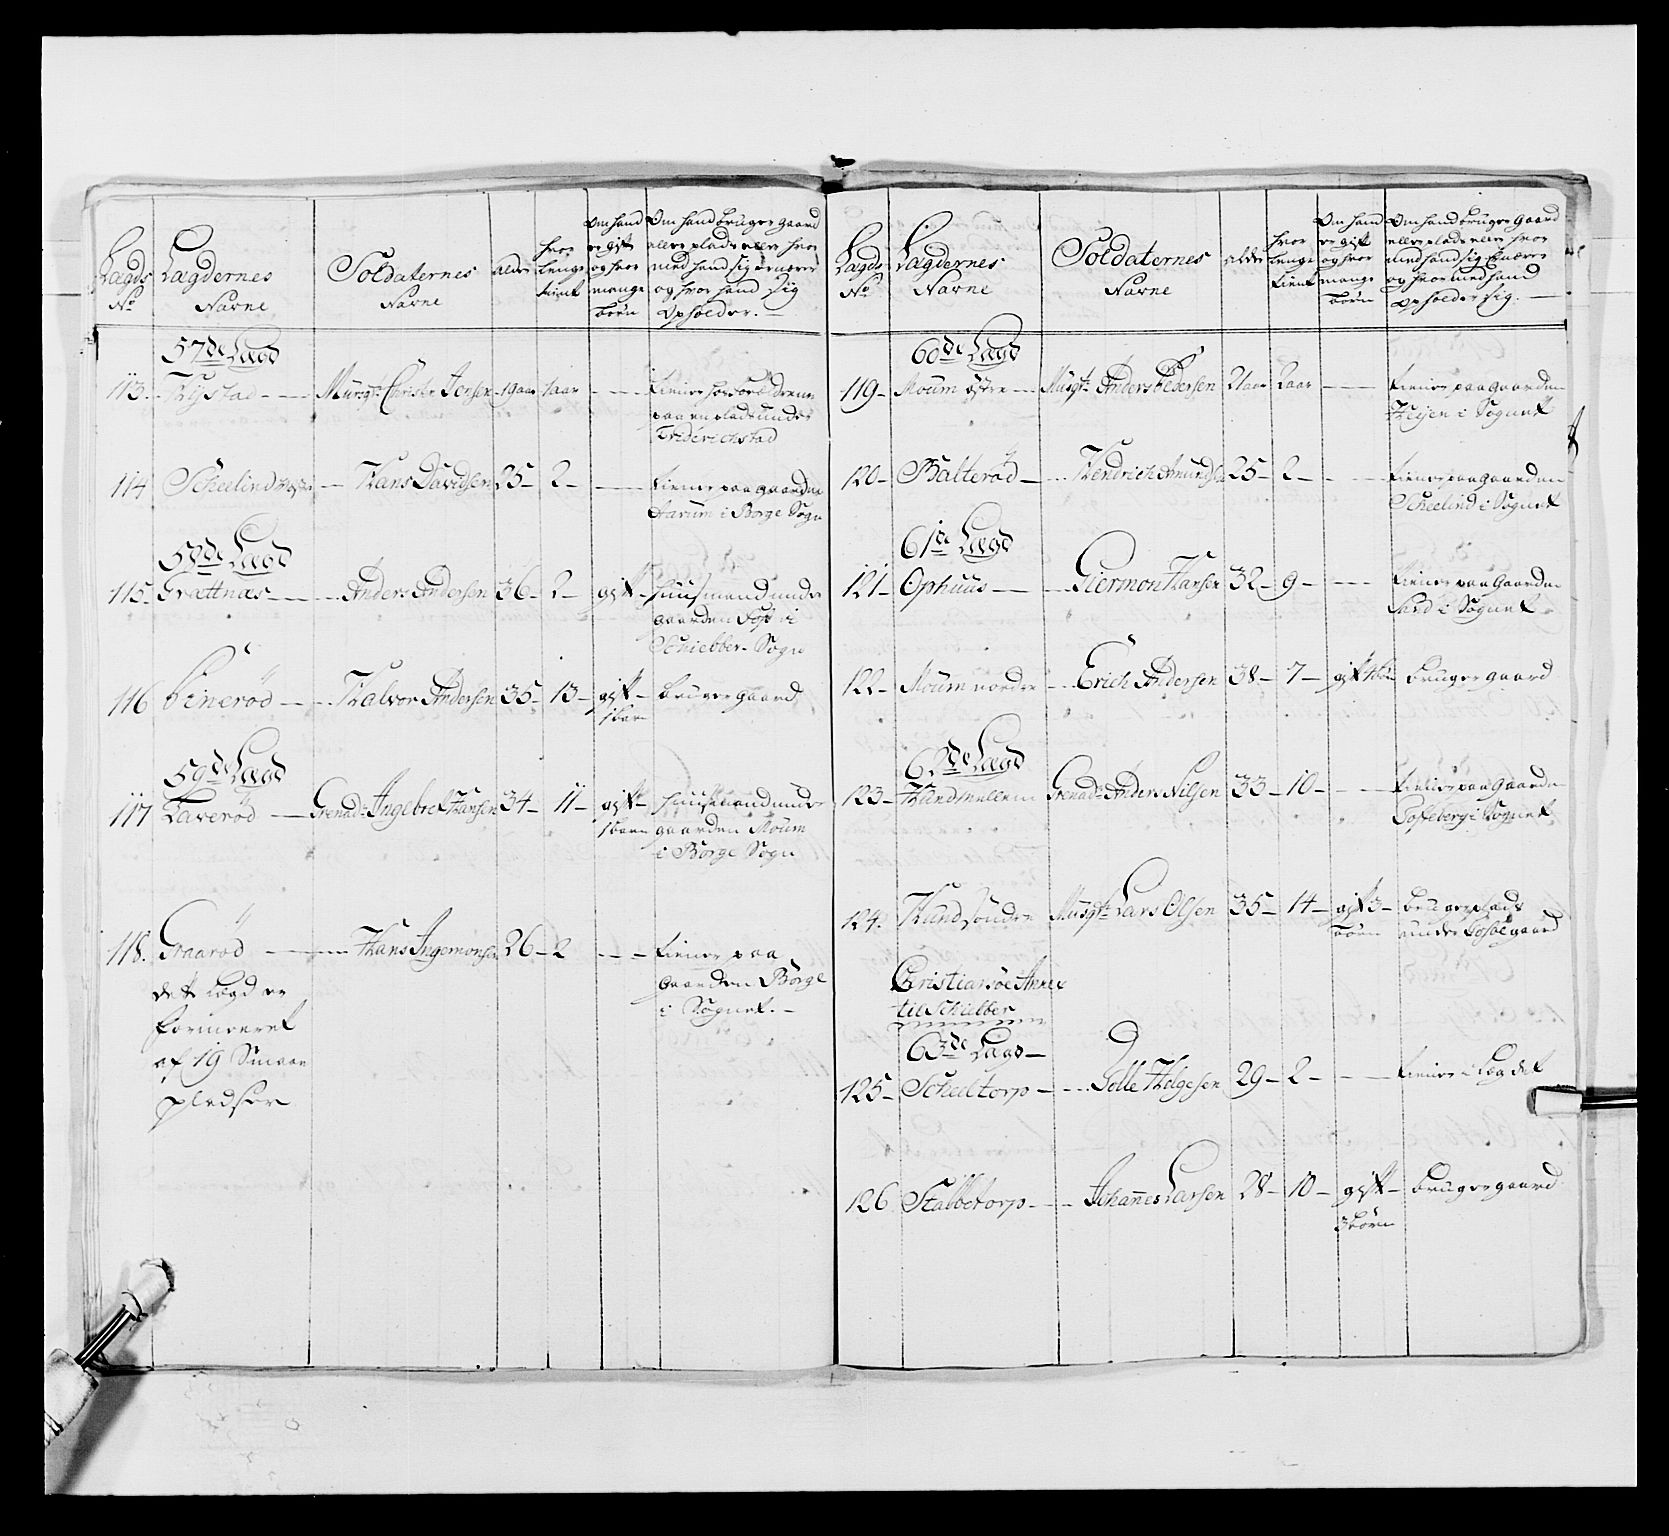 Lægds No
Lægdernes Navne
Soldaternes Navne
Alder
hvor lenge tient
Om hand er gift og hvor mange børn
Om hand bruger gaard eller plads eller hvor med hand sig ernærer og hvor hand sig Opholder.
57de Lægd
113. Thystad Musqt. Christen Jensen 19 aar 1 aar tiener hos forældrene
paa en plads under
Friderichstad
114 Scheelind Hans Davidsen 25 2 tiener paa gaarden
i Borge Sogn
58de Lægd
115. Grættnæs Anders Andersen 36 2 gift huusmand under
gaarden i
Schiebber Sogn
116 Halvor Andersen 35 13 gift bruger gaard
1 barn
59de Lægd
117 Grenad. Ingebret Hansen 34 11 gift huusmand under
1 barn gaarden Moum
i Borge Sogn
118. Graarød Hans Ingemonsen 26 2 tiener paa
det Lægd er gaarden Borge
formeret i Sognet.
af 19 Smaae
pladser
Lægds No
Lægdernes Navne
Soldaternes Navne
Alder
hvor lenge tient
Om hand er gift og hvor mange børn
Om hand bruger gaard eller plads eller hvor med hand sig ernærer og hvor med hand Opholder sig.
60de Lægd
119 Moum østre Musqt. Anders Pedersen 21 aar 2 aar tiener paa gaarden
i Sognet
120 Balterød Hendrich Amundsen 25 2 tiener paa gaarden
Scheelind i Sognet
61de Lægd
121 Ophuus Giermon Hansen 32 9 tiener paa Gaarden
i Sognet
122 Moum nordre Erich Andersen 38 7 gift bruger gaard
62de Lægd
123 Hundmellem Grenad. Anders Nilsen 33 10 tiener paa Gaarden
i Sognet
124. Hund søndre Musqt. Lars Olsen 35 14 gift 3 bruger plads
børn under gaard
Christiansøe Annex
til Schiebber
63de Lægd
125 Scheltorp Helgesen 29 2 tiener i Lægdet
126 Stabbetorp Johannes Larsen 28 10 gift bruger gaard
3 børn